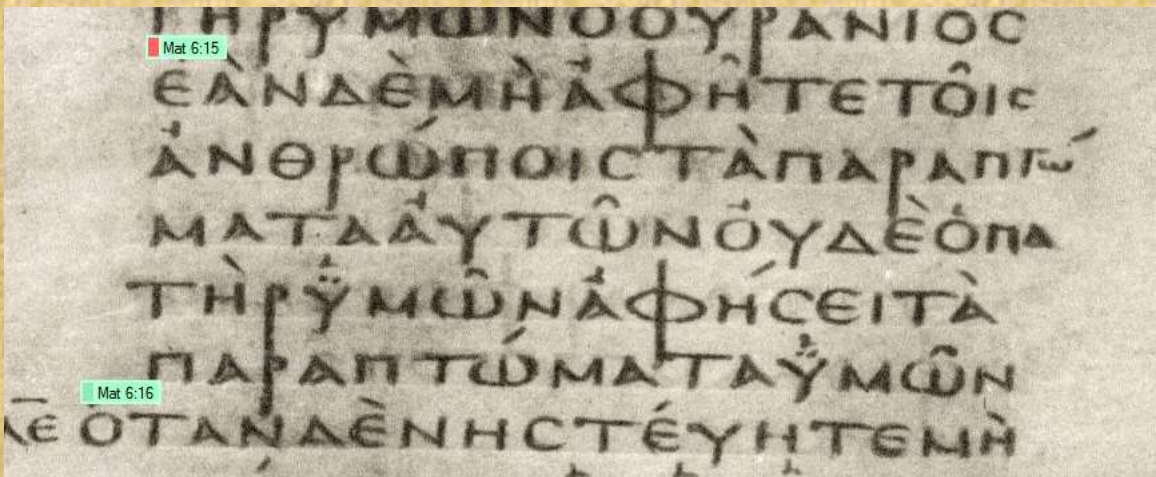 ΤΗΡΥΜΩΝΟΟΥΡΑΝΙΟϹ
Mat 6:15
ἘᾺΝΔΈΜῊἈΦΗ͂ΤΕΤΟΙ͂Ϲ
ἈΝΘΡΏΠΟΙϹΤᾺΠΑΡΑΠΤΏ
ΜΑΤΑἈΥΤΩ͂ΝὈΥΔῈὉΠΑ
ΤῊΡΫ̔ΜΩ͂ΝἈΦΉϹΕΙΤᾺ
ΠΑΡΑΠΤΏΜΑΤΑΫ̔ΜΩ͂Ν
Mat 6:16
Ε ὉΤΑΝΔῈΝΗϹΤΈΥΗΤΕΜῊ